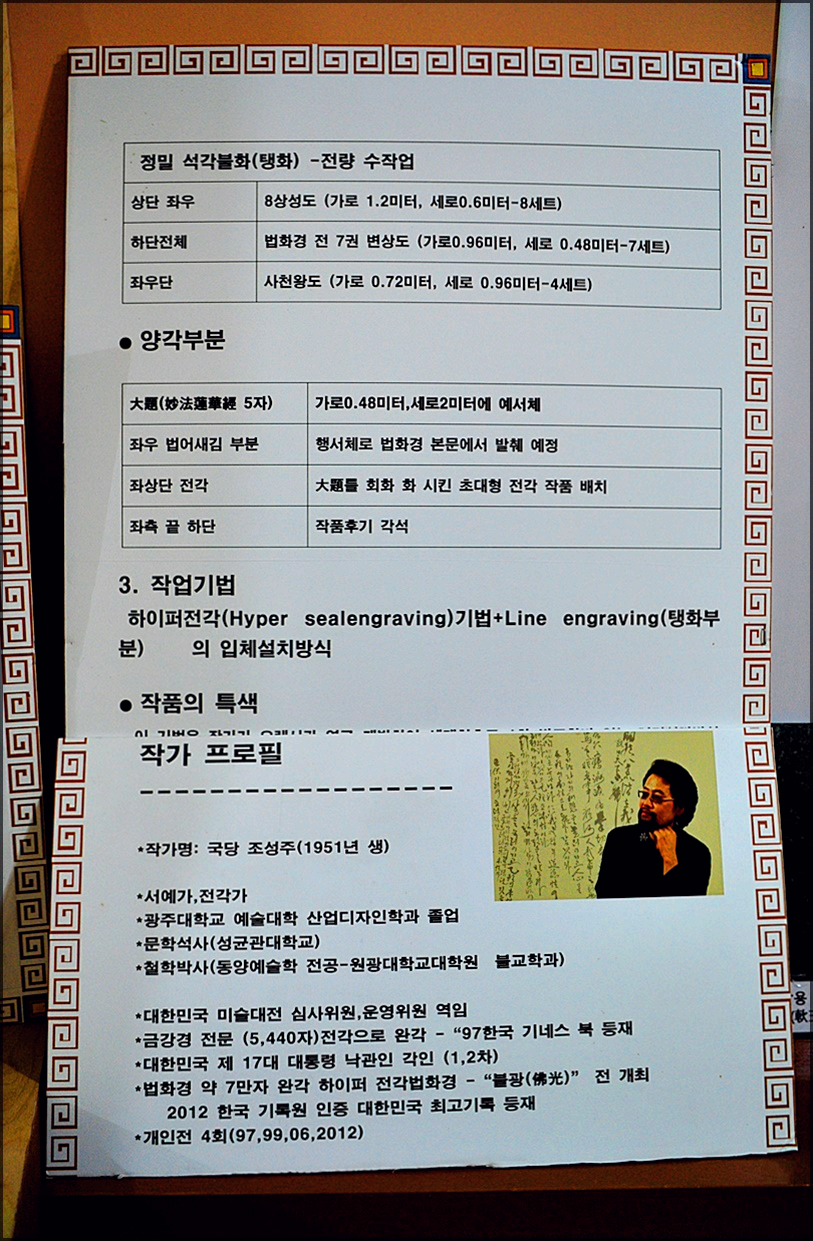 정밀 석각불화(탱화) -전량 수작업
상단 좌우 8상성도 (가로 1.2미터, 세로0.6미터-8세트)
하단전체 법화경 전 7권 변상도 (가로0.96미터, 세로 0.48미터-7세트)
좌우단 사천왕도 (가로 0.72미터, 세로 0.96미터-4세트)
● 양각부분
大題(妙法蓮華經 5자) 가로0.48미터,세로2미터에 예서체
좌우 법어새김 부분 행서체로 법화경 본문에서 발췌 예정
좌상단 전각 大題를 회화 화 시킨 초대형 전각 작품 배치
좌측 끝 하단 작품후기 각석
3. 작업기법
하이퍼전각(Hyper sealengraving)기법+Line engraving(탱화부
분) 의 입체설치방식
● 작품의 특색
작가 프로필
------------------
*작가명: 국당 조성주(1951년 생)
*서예가,전각가
*광주대학교 예술대학 산업디자인학과 졸업
*문학석사(성균관대학교)
*철학박사(동양예술학 전공-원광대학교대학원 불교학과)
*대한민국 미술대전 심사위원,운영위원 역임
*금강경 전문 (5,440자)전각으로 완각 - “97한국 기네스 북 등재
*대한민국 제 17대 대통령 낙관인 각인 (1,2차)
*법화경 약 7만자 완각 하이퍼 전각법화경 - “불광(佛光)” 전 개최
2012 한국 기록원 인증 대한민국 최고기록 등재
*개인전 4회(97,99,06,2012)